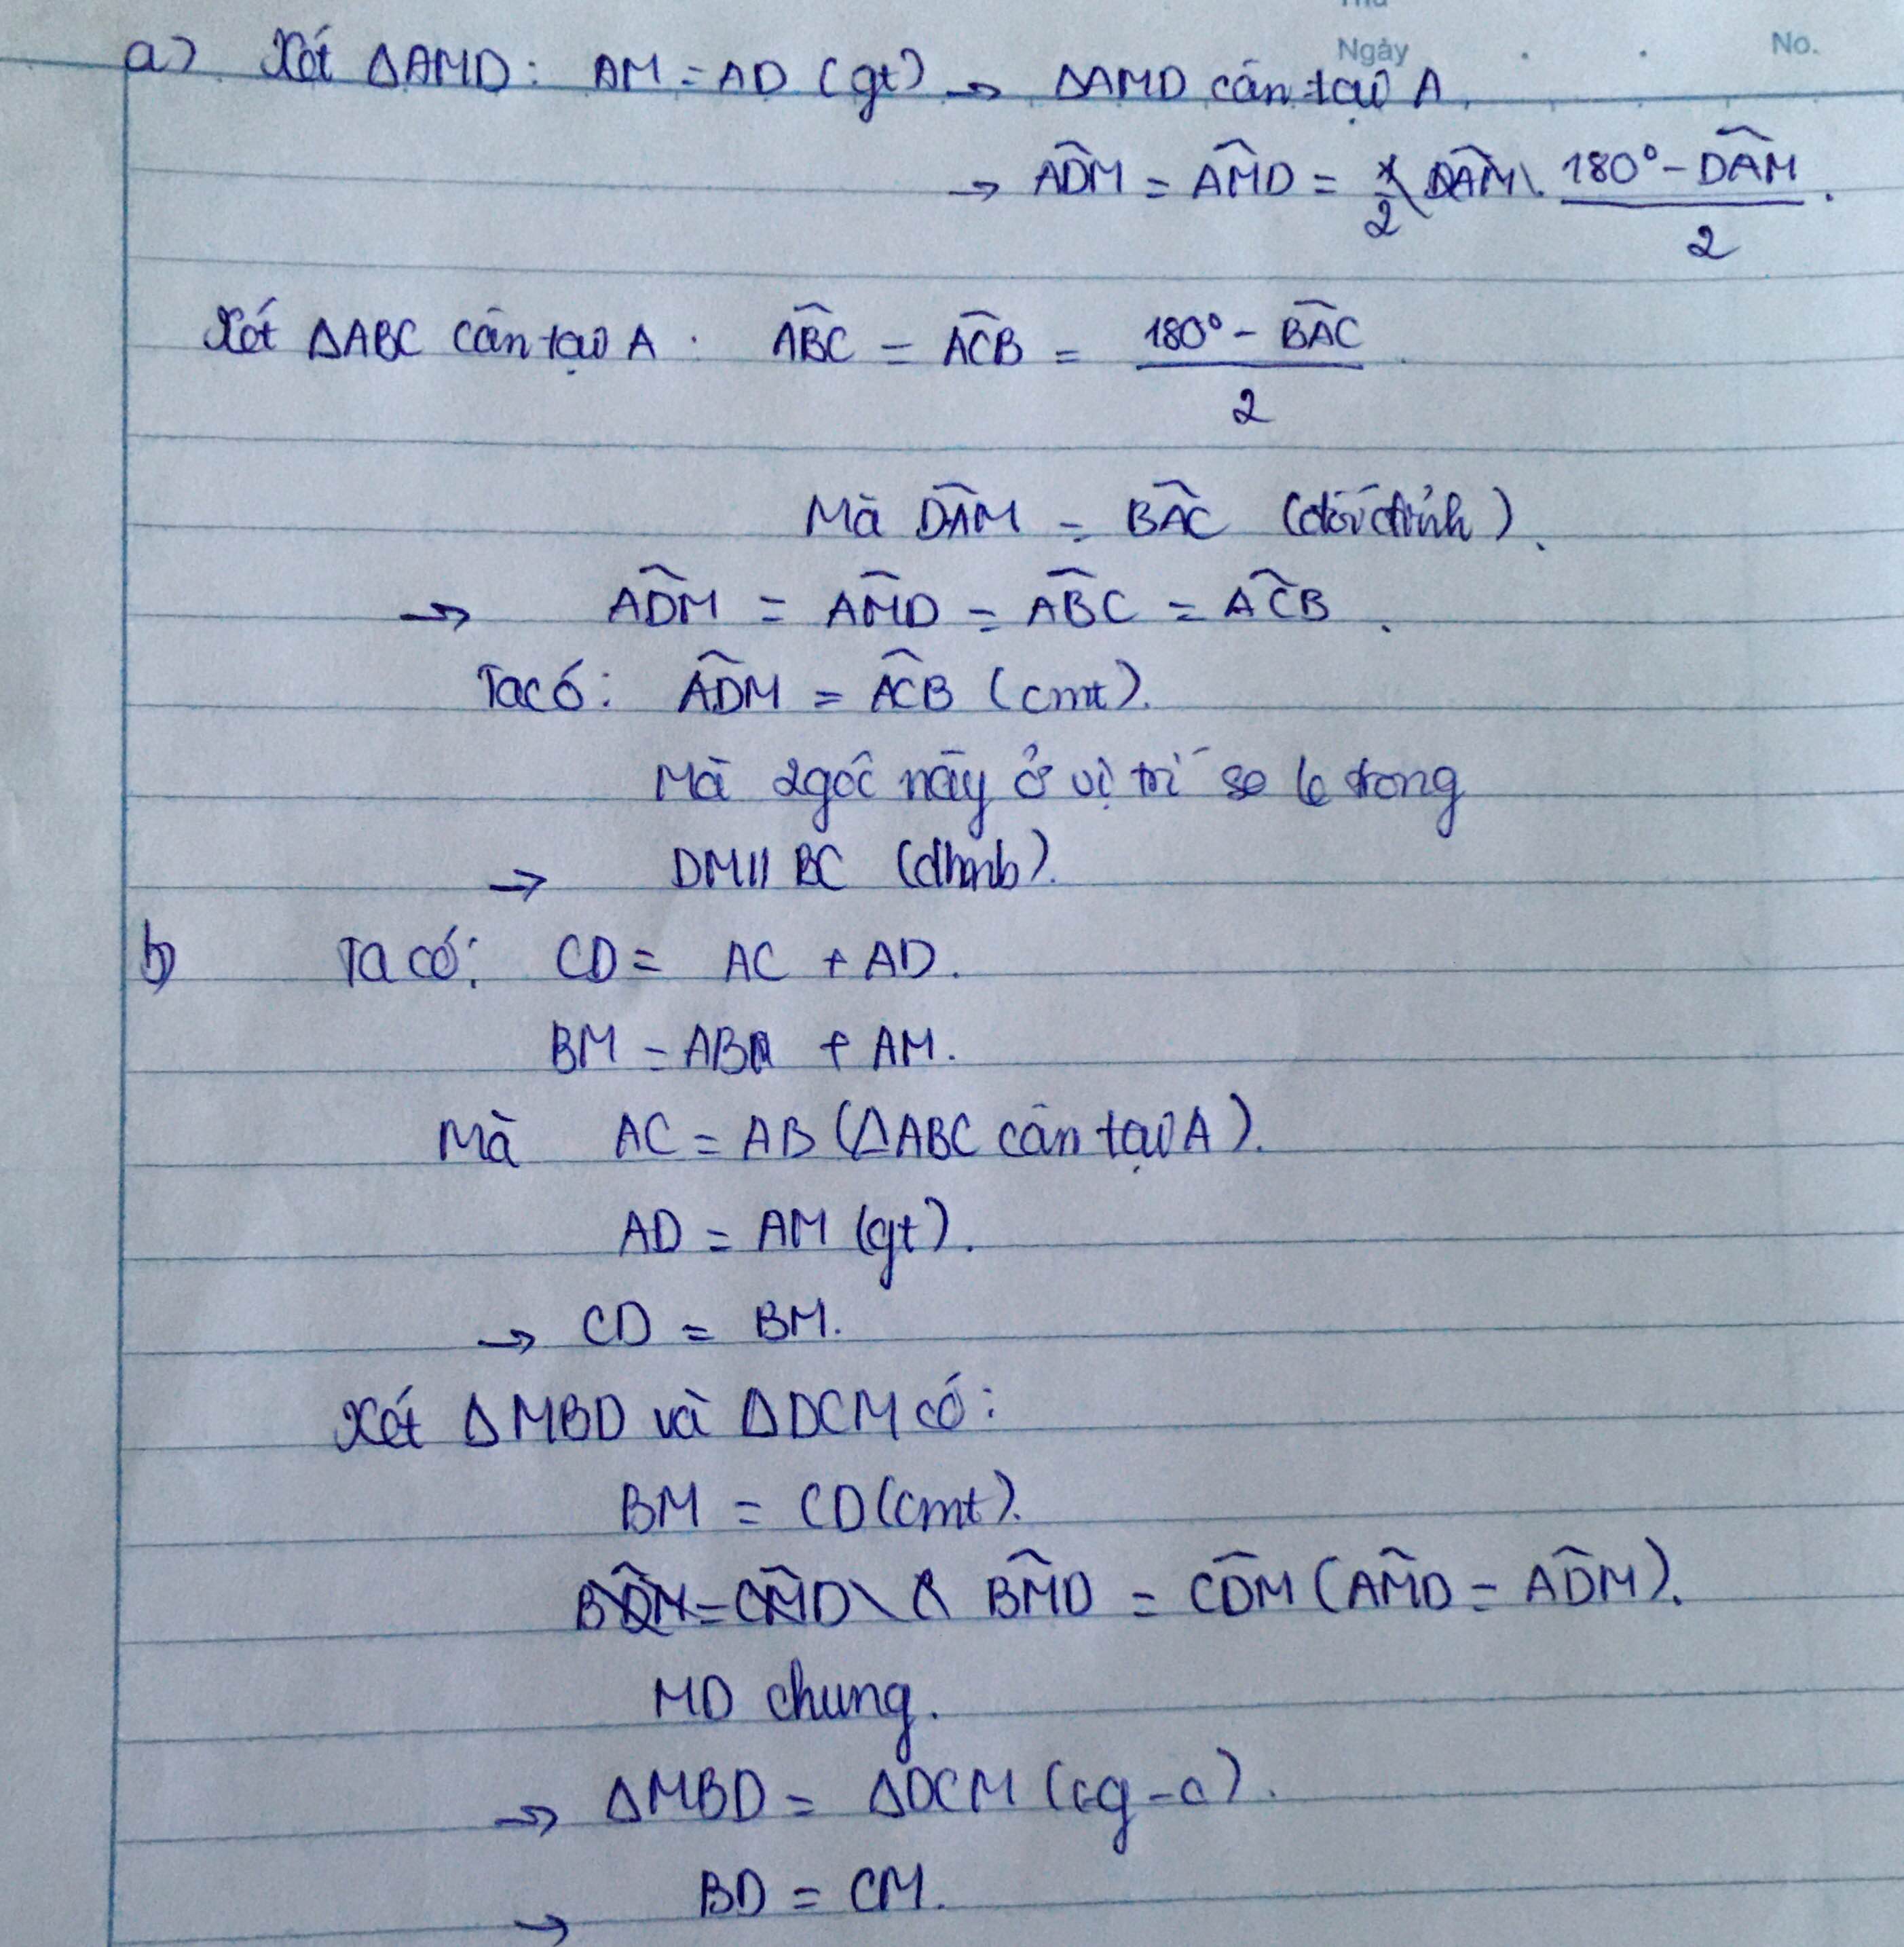 Thứ
Ngày . . No.
a) Xét ΔAMD: AM = AD (gt) → ΔAMD cân tại A.
→ \widehat{ADM} = \widehat{AMD} = \frac{180° - \widehat{DAM}}{2}.
Xét ΔABC cân tại A: \widehat{ABC} = \widehat{ACB} = \frac{180° - \widehat{BAC}}{2}.
Mà \widehat{DAM} = \widehat{BAC} (đối đỉnh).
→ \widehat{ADM} = \widehat{AMD} = \widehat{ABC} = \widehat{ACB}.
Ta có: \widehat{ADM} = \widehat{ACB} (cmt).
Mà 2 góc này ở vị trí so le trong
→ DM // BC (dhnb).
b) Ta có: CD = AC + AD.
BM = AB + AM.
Mà AC = AB (ΔABC cân tại A).
AD = AM (gt).
→ CD = BM.
Xét ΔMBD và ΔDCM có:
BM = CD (cmt).
\widehat{BMD} = \widehat{CDM} (\widehat{AMD} = \widehat{ADM}).
MD chung.
→ ΔMBD = ΔDCM (c-g-c).
→ BD = CM.